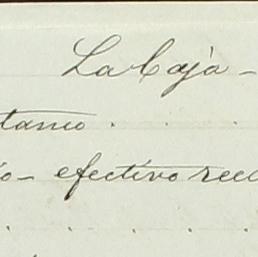 La Caja -
tamo . . .
o - efectivo rec
. . . . .